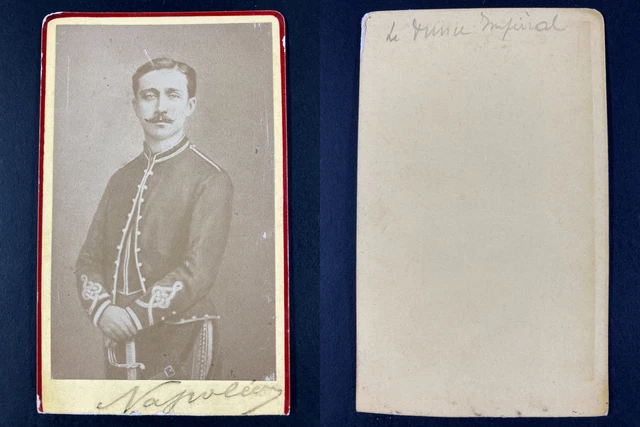 Napoléon
Le Prince Impérial